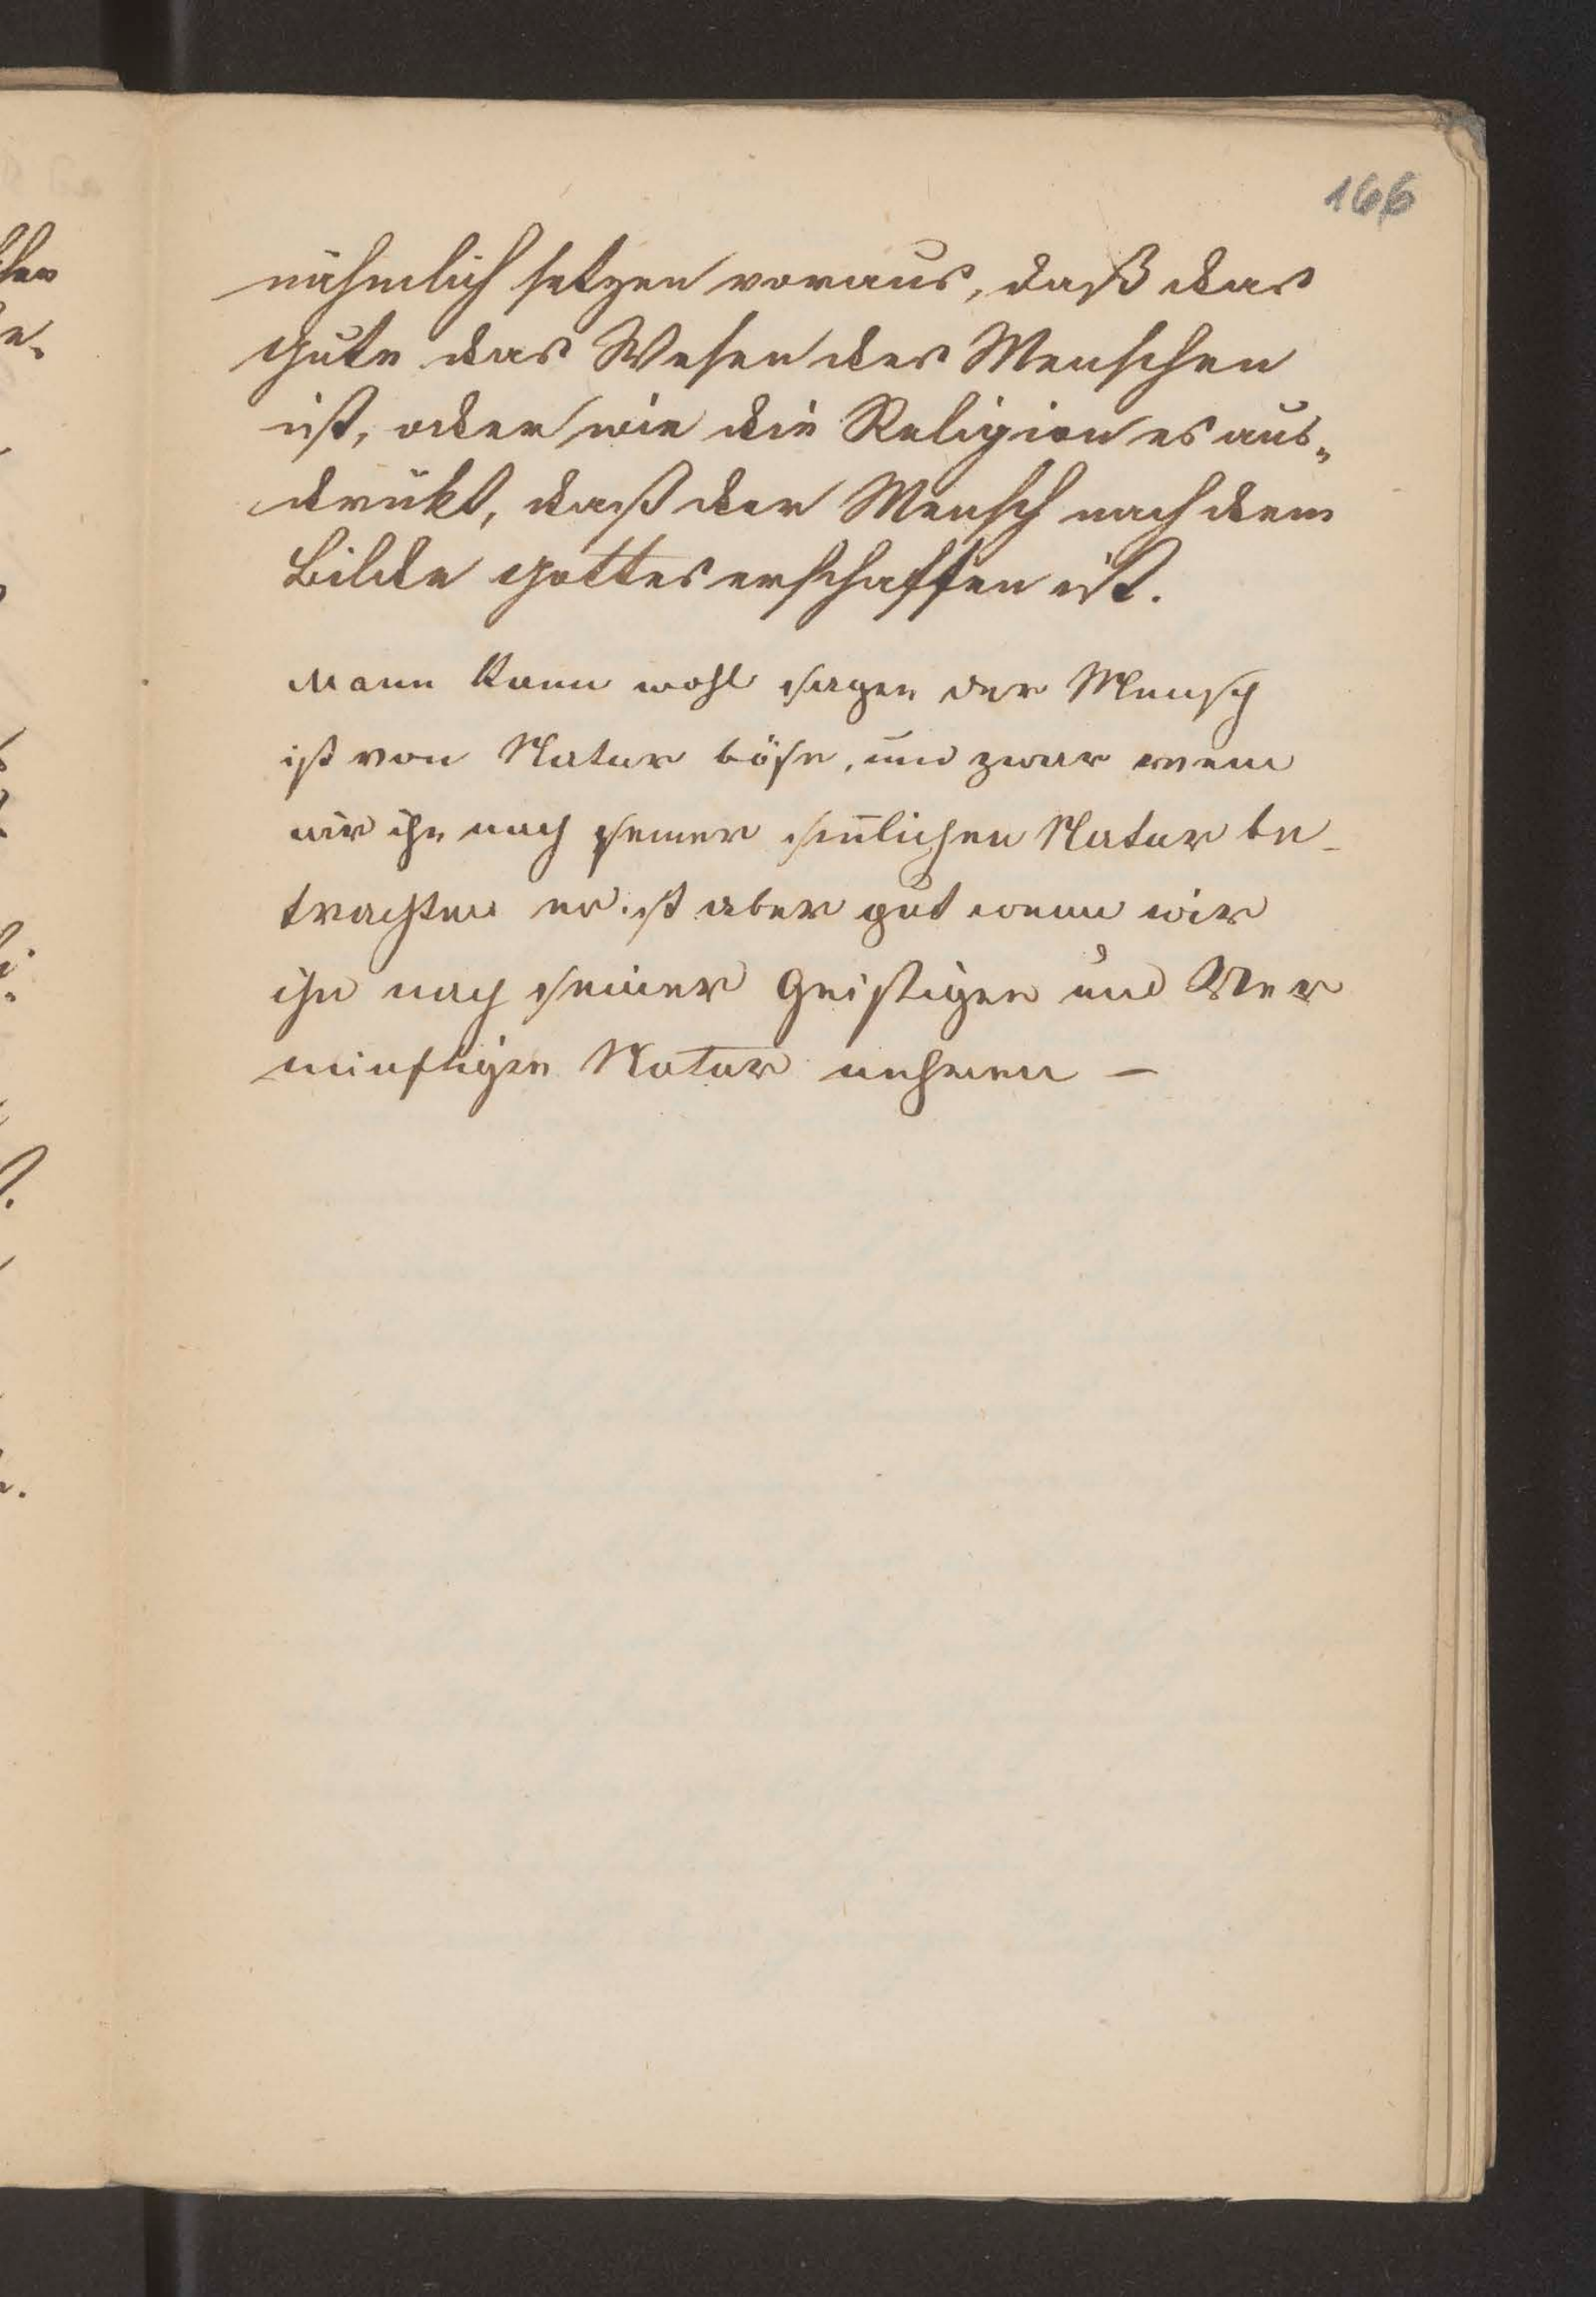 166
nähmlich setzen voraus, daß das
Gute das Wesen des Menschen
ist, oder wie die Religion es aus„
drükt, daß der Mensch nach dem
Bilde Gottes erschaffen ist.
Mann kann wohl sagen der Mensch
ist von Natur böse, und zwar wenn
wir ihn nach seiner sinlichen Natur be-
trachten er ist aber gut wenn wir
ihn nach seiner Geistigen und Ver
nünftigen Natur nehmen —